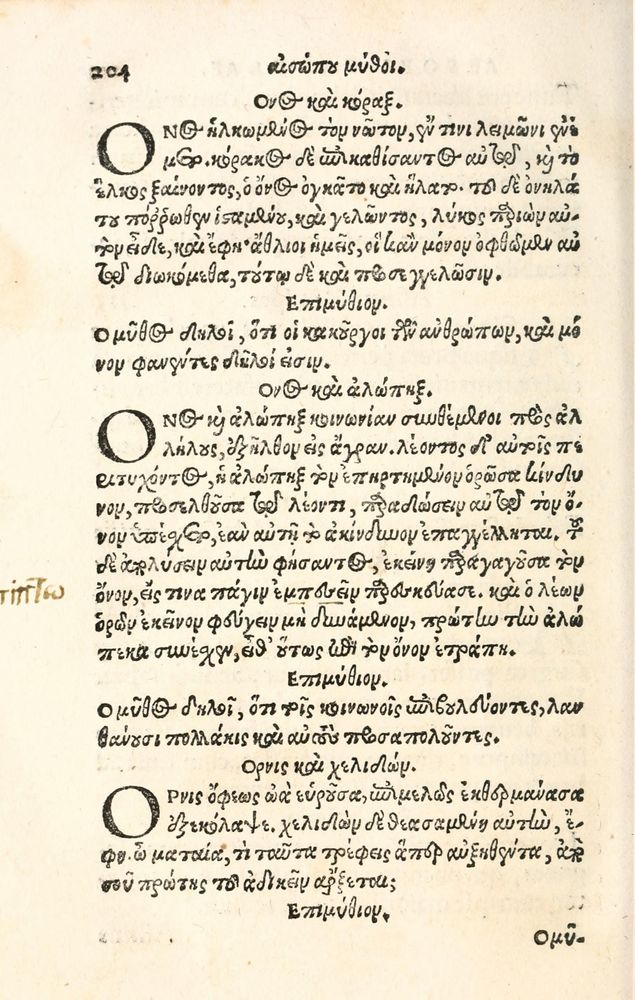 204 αἰσώπου μῦθοι.
Ονος καὶ κόραξ.
ΟΝος ἡλκωμένος τὸν νῶτον, ἔν τινι λειμῶνι ἐνέ
μετο. κόρακος δὲ ἐπικαθίσαντος αὐτῷ, καὶ τὸ
ἕλκος ξαίνοντος, ὁ ὄνος ὀγκᾶτο καὶ ἥλατο. τοῦ δὲ ὀνηλά
του πόῤῥωθεν ἱσαμένου, καὶ γελῶντος, λύκος παριὼν αὐ-
τὸν εἶδε, καὶ ἔφη· ἄθλιοι ἡμεῖς, οἳ κᾂν μόνον ὀφθῶμεν αὐ
τῷ διωκόμεθα, τούτῳ δὲ καὶ προσεγγελῶσιν.
Επιμύθιον.
Ο μῦθος δηλοῖ, ὅτι οἱ κακοῦργοι τῶν ἀνθρώπων, καὶ μό
νον φανέντες δῆλοί εἰσιν.
Ονος καὶ ἀλώπηξ.
ΟΝος καὶ ἀλώπηξ κοινωνίαν συνθέμενοι πρὸς ἀλ
λήλους, ἐξῆλθον εἰς ἄγραν. λέοντος δ' αὐτοῖς πε
ριτυχόντος, ἡ ἀλώπηξ τὸν ἐπηρτημένον ὁρῶσα κίνδυ
νον, προσελθοῦσα τῷ λέοντι, παραδώσειν αὐτῷ τὸν ὄ-
νον ὑπέσχετο, ἐὰν αὐτῇ τὸ ἀκίνδυνον ἐπαγγέλληται. τοῦ
δὲ ἀπολύσειν αὐτὴν φήσαντος, ἐκείνη παραγαγοῦσα τὸν
ὄνον, εἴς τινα πάγιν ἐμπεσεῖν παρεσκεύασε. καὶ ὁ λέων
ὁρῶν ἐκεῖνον φεύγειν μὴ δυνάμενον, πρώτην τὴν ἀλώ
πεκα συνέσχεν, εἶθ' οὕτως ἐπὶ τὸν ὄνον ἐτράπη.
Επιμύθιον.
Ο μῦθος δηλοῖ, ὅτι τοῖς κοινωνοῖς ἐπιβουλεύοντες, λαν
θάνουσι πολλάκις καὶ αὑτοὺς προσαπολοῦντες.
Ορνις καὶ χελιδών.
ΟΡνις ὄφεως ὠὰ εὑροῦσα, ἐπιμελῶς ἐκθερμάνασα
ἐξεκόλαψε. χελιδὼν δὲ θεασαμένη αὐτὴν, ἔ-
φη. ὦ ματαία, τί ταῦτα τρέφεις ἅπερ αὐξηθέντα, ἀπὸ
σοῦ πρώτης τοῦ ἀδικεῖν ἄρξεται;
Επιμύθιον.
Ο μῦ-